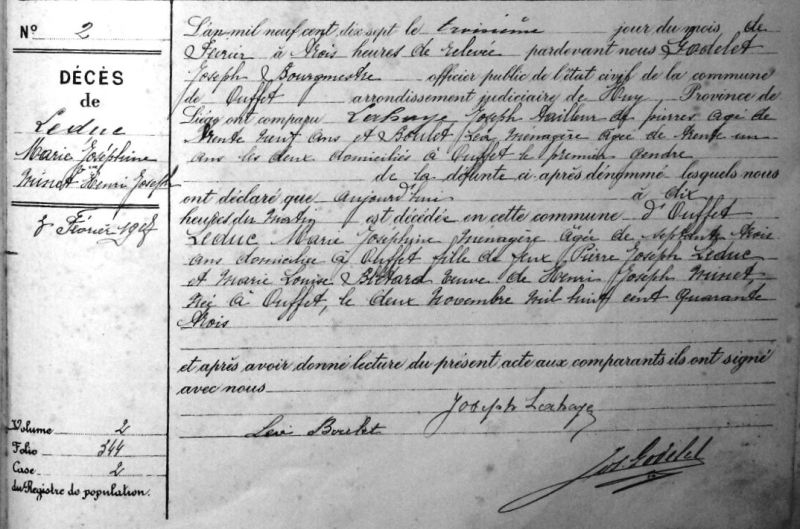 N° 2
DÉCÈS
de
Leduc
Marie Joséphine
Minet Henri Joseph
3 Février 1917
Volume 2
Folio 344
Case 2
du Registre de population.
L'an mil neuf cent dix sept le troisième jour du mois de
Février à trois heures de relevée pardevant nous Godelet
Joseph Bourgmestre officier public de l'état civil de la commune
de Ouffet arrondissement judiciaire de Huy, Province de
Liège ont comparu Lahaye Joseph tailleur de pierres âgé de
trente neuf ans et Boulet Léa, ménagère âgée de trente un
ans les deux domiciliés à Ouffet le premier gendre
de la défunte ci-après dénommé lesquels nous
ont déclaré que aujourd'hui à dix
heures du matin est décédée en cette commune d'Ouffet
Leduc, Marie Joséphine ménagère âgée de septante trois
ans domiciliée à Ouffet fille de feux Pierre Joseph Leduc
et Marie Louise veuve de Henri Joseph Minet,
née à Ouffet, le deux Novembre mil huit cent quarante
trois
et après avoir donné lecture du présent acte aux comparants ils ont signé
avec nous
Joseph Lahaye
Boulet
Jos Godelet